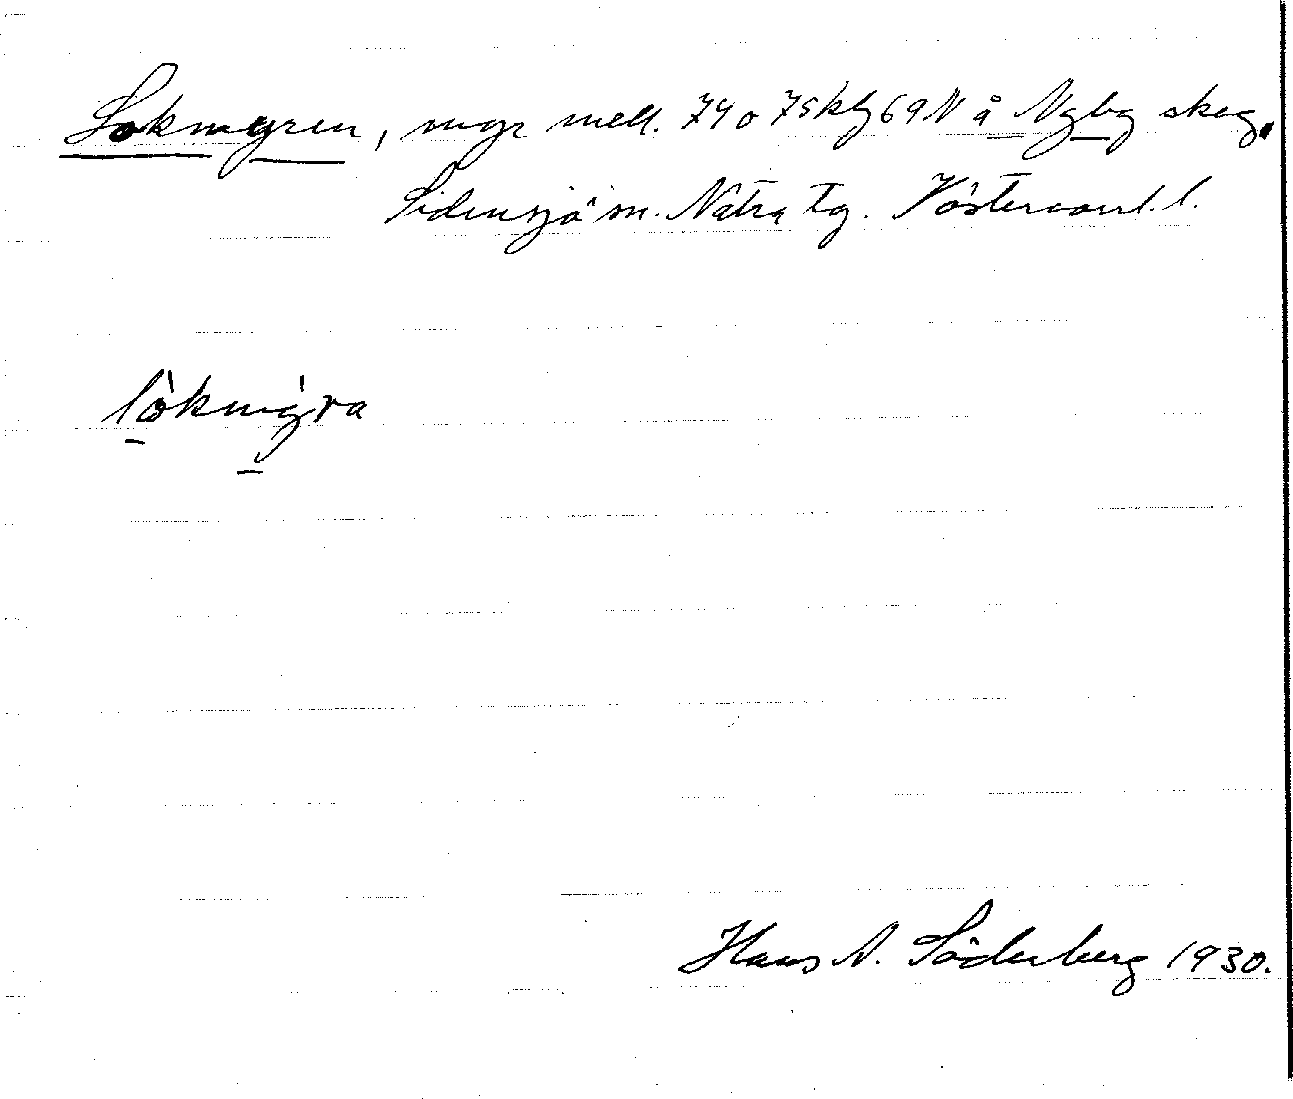 Lokmyren, myr mell. 74 o 75 kbg 69 N å Nybg skog.
Sidensjö sn. Nätra tg. Västernorrl. l.
lòkmỳra
Hans N. Söderberg 1930.